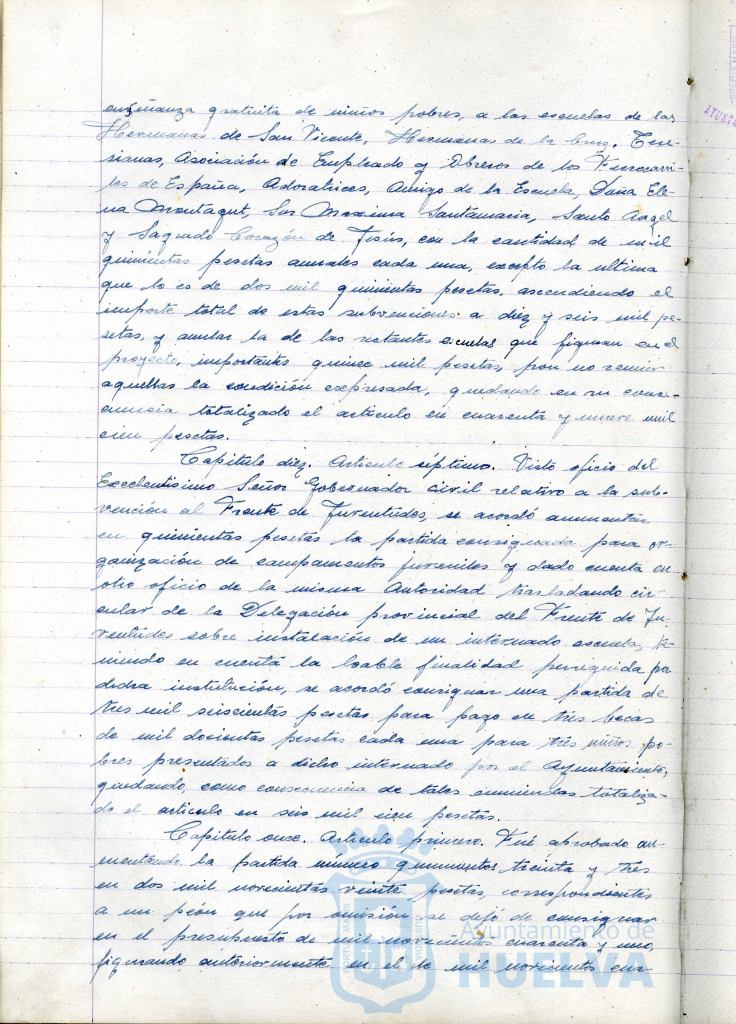 enseñanza gratuita de niños pobres, a las escuelas de las
Hermanas de San Vicente, Hermanas de la Cruz, Tere-
sianas, Asociación de Empleado y Obreros de los Ferrocarri-
les de España, Adoratrices, Amigo de la Escuela, Doña Ele-
na Montagut, Sor Maxima Santamaria, Santo Angel
y Sagrado Corazón de Jesús, con la cantidad de mil
quinientas pesetas anuales cada una, excepto la ultima
que lo es de dos mil quinientas pesetas, ascendiendo el
importe total de estas subvenciones a diez y seis mil pe-
setas, y anular la de las restantes escuelas que figuran en el
proyecto, importantes quince mil pesetas, por no reunir
aquellas la condición expresada, quedando en su conse-
cuencia totalizado el artículo en cuarenta y nueve mil
cien pesetas.
Capítulo diez. Articulo séptimo. Visto oficio del
Excelentisimo Señor Gobernador civil relativo a la sub-
vención al Frente de Juventudes, se acordó aumentar
en quinientas pesetas la partida consignada para or-
ganización de campamentos juveniles y dado cuenta en
otro oficio de la misma Autoridad trasladando cir-
cular de la Delegación provincial del Frente de Ju-
ventudes sobre instalación de un internado escuela, te-
niendo en cuenta la loable finalidad perseguida por
dicha institución, se acordó consignar una partida de
tres mil seiscientas pesetas para pago de tres becas
de mil doscientas pesetas cada una para tres niños po-
bres presentados a dicho internado por el Ayuntamiento,
quedando, como consecuencia de tales enmiendas totaliza-
do el artículo en seis mil cien pesetas.
Capítulo once. Artículo primero. Fué aprobado au-
mentando la partida número quinientos treinta y tres
en dos mil novecientas veinte pesetas, correspondientes
a un peón que por omisión se dejó de consignar
en el presupuesto de mil novecientos cuarenta y uno,
figurando anteriormente en el de mil novecientos cua-
Ayuntamiento de
HUELVA